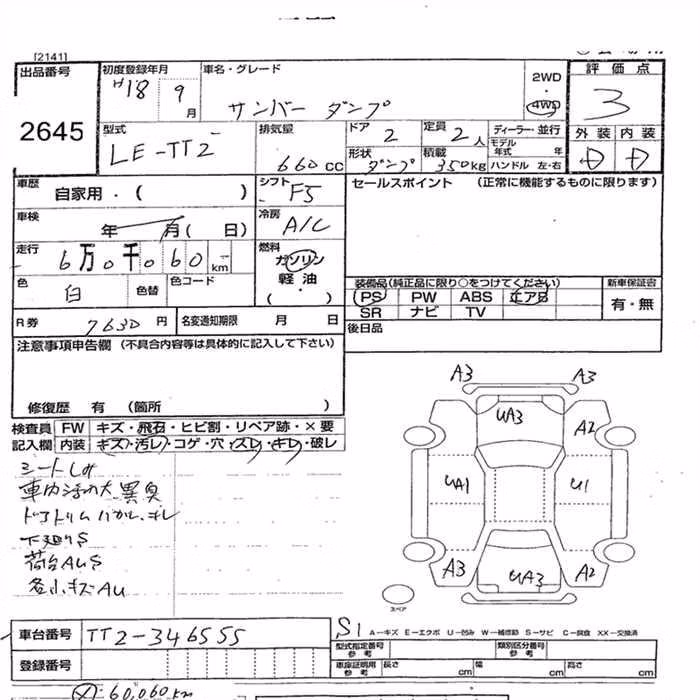 [2141]
出品番号
2645
初度登録年月
H18 9 月
車名・グレード
サンバー ダンプ
2WD
・
4WD
評価点
3
外装 内装
D D
型式
LE-TT2
排気量
660 CC
ドア
2
定員
2 人
ディーラー・並行
モデル年式 年
形状
ダンプ
積載
350kg
ハンドル 左・右
車歴
自家用・( )
シフト
F5
車検
年 月( 日)
冷房
A/C
走行
6万0千060km
燃料
ガソリン
軽油
( ・ )
色
白
色替
色コード
R券
7630円
名変通知期限 月 日
セールスポイント (正常に機能するものに限ります)
装備品(純正品に限り○をつけてください)
新車保証書
PS PW ABS エアB
SR ナビ TV
有・無
後日品
注意事項申告欄 (不具合内容等は具体的に記入して下さい)
修復歴 有 (箇所 )
検査員 FW キズ・飛石・ヒビ割・リペア跡・×要
記入欄 内装 キズ・汚レ・コゲ・穴・スレ・キレ・破レ
シートしみ
車内汚れ大 異臭
ドアトリム ハガレ、キレ
下廻りS
荷台AUS
各小キズAU
A3 A3
UA3
A2
UA1
U1
A3
UA3
A2
スペア
S1
A-キズ E-エクボ U-凹み W-補修跡 S-サビ C-腐食 XX-交換済
車台番号
TT2-346555
登録番号
型式指定番号 参考
類別区分番号 参考
車庫証明用 参考
長さ cm
幅 cm
高さ cm
60,060 km